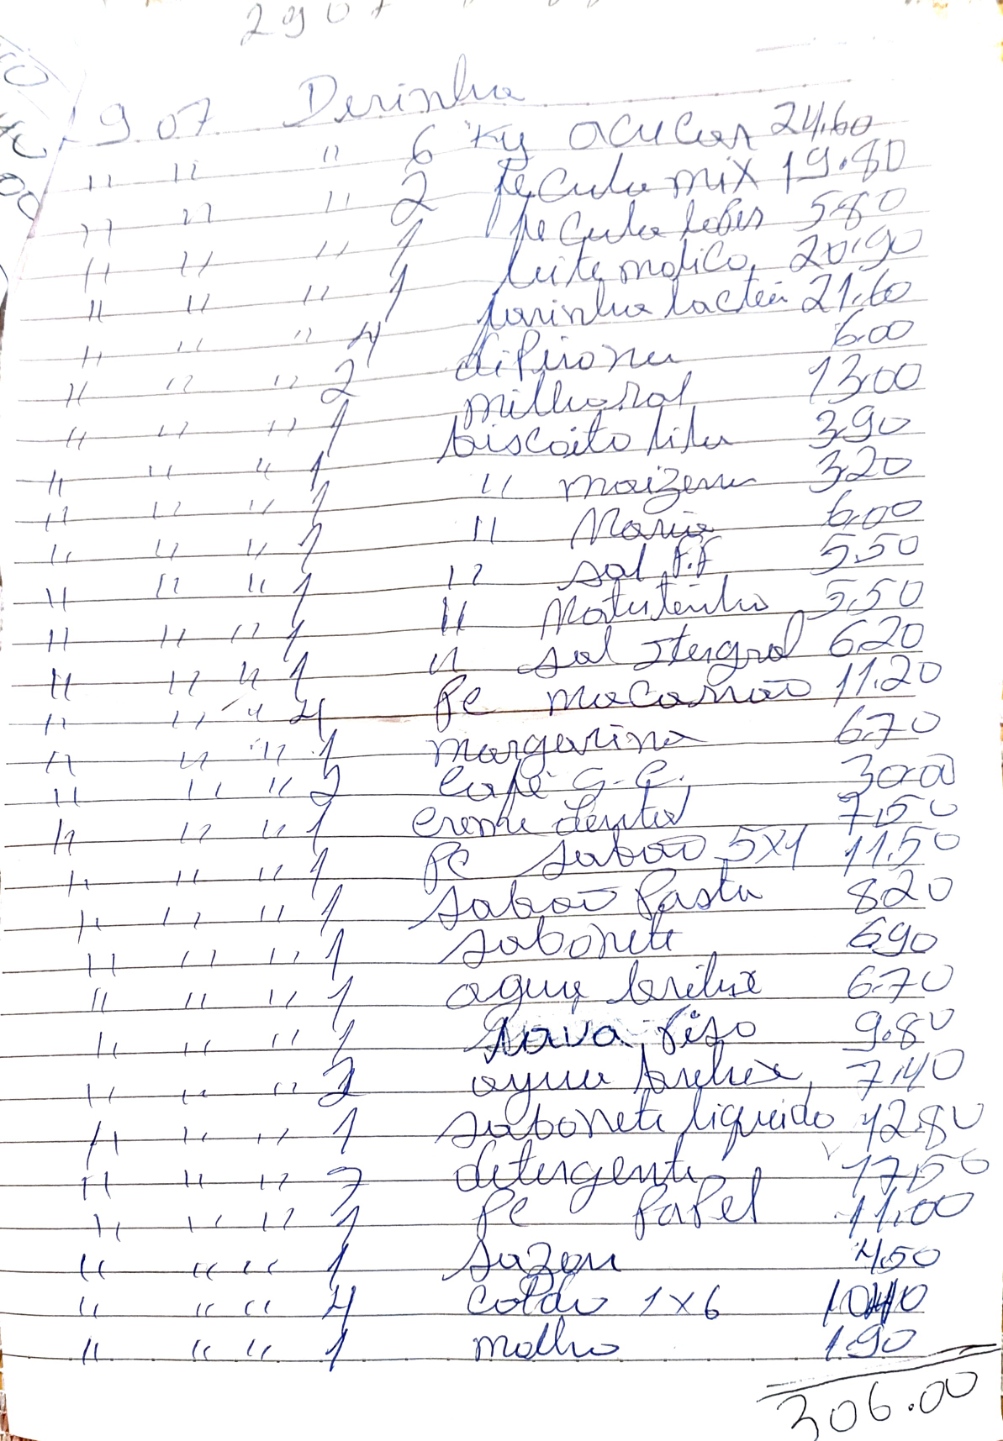 2907
19.07 Derinha
6 Kg acucar 24.60
" " " 2 fe Cula mix 19.80
" " " 1 fe Cula 5.80
" " " 1 leite molico 20.90
" " " 1 farinha lactea 21.60
" " " 4 dipirona 6.00
" " " 2 milharal 13.00
" " " 1 biscoito lila 3.90
" " " 1 " maizena 3.20
" " " 1 " Maria 6.00
" " " 1 " sal F.F 5.50
" " " 1 " Matutinho 5.50
" " " 1 " sal Itengral 6.20
" " " 4 Pc macarrão 11.20
" " " 1 margarina 6.70
" " " 2 Café G.G. 30.00
" " " 1 creme dental 7.50
" " " 1 Pc sabão 5x1 11.50
" " " 1 sabão Pasta 8.20
" " " 1 sabonete 6.90
" " " 1 agua brilux 6.70
" " " 1 Lava Piso 9.80
" " " 2 agua brilux 7.40
" " " 1 sabonete liquido 12.80
" " " 7 detergente 17.50
" " " 1 Pc Papel 11.00
" " " 1 sazon 4.50
" " " 4 caldo 1x6 10.40
" " " 1 molho 1.90
306.00